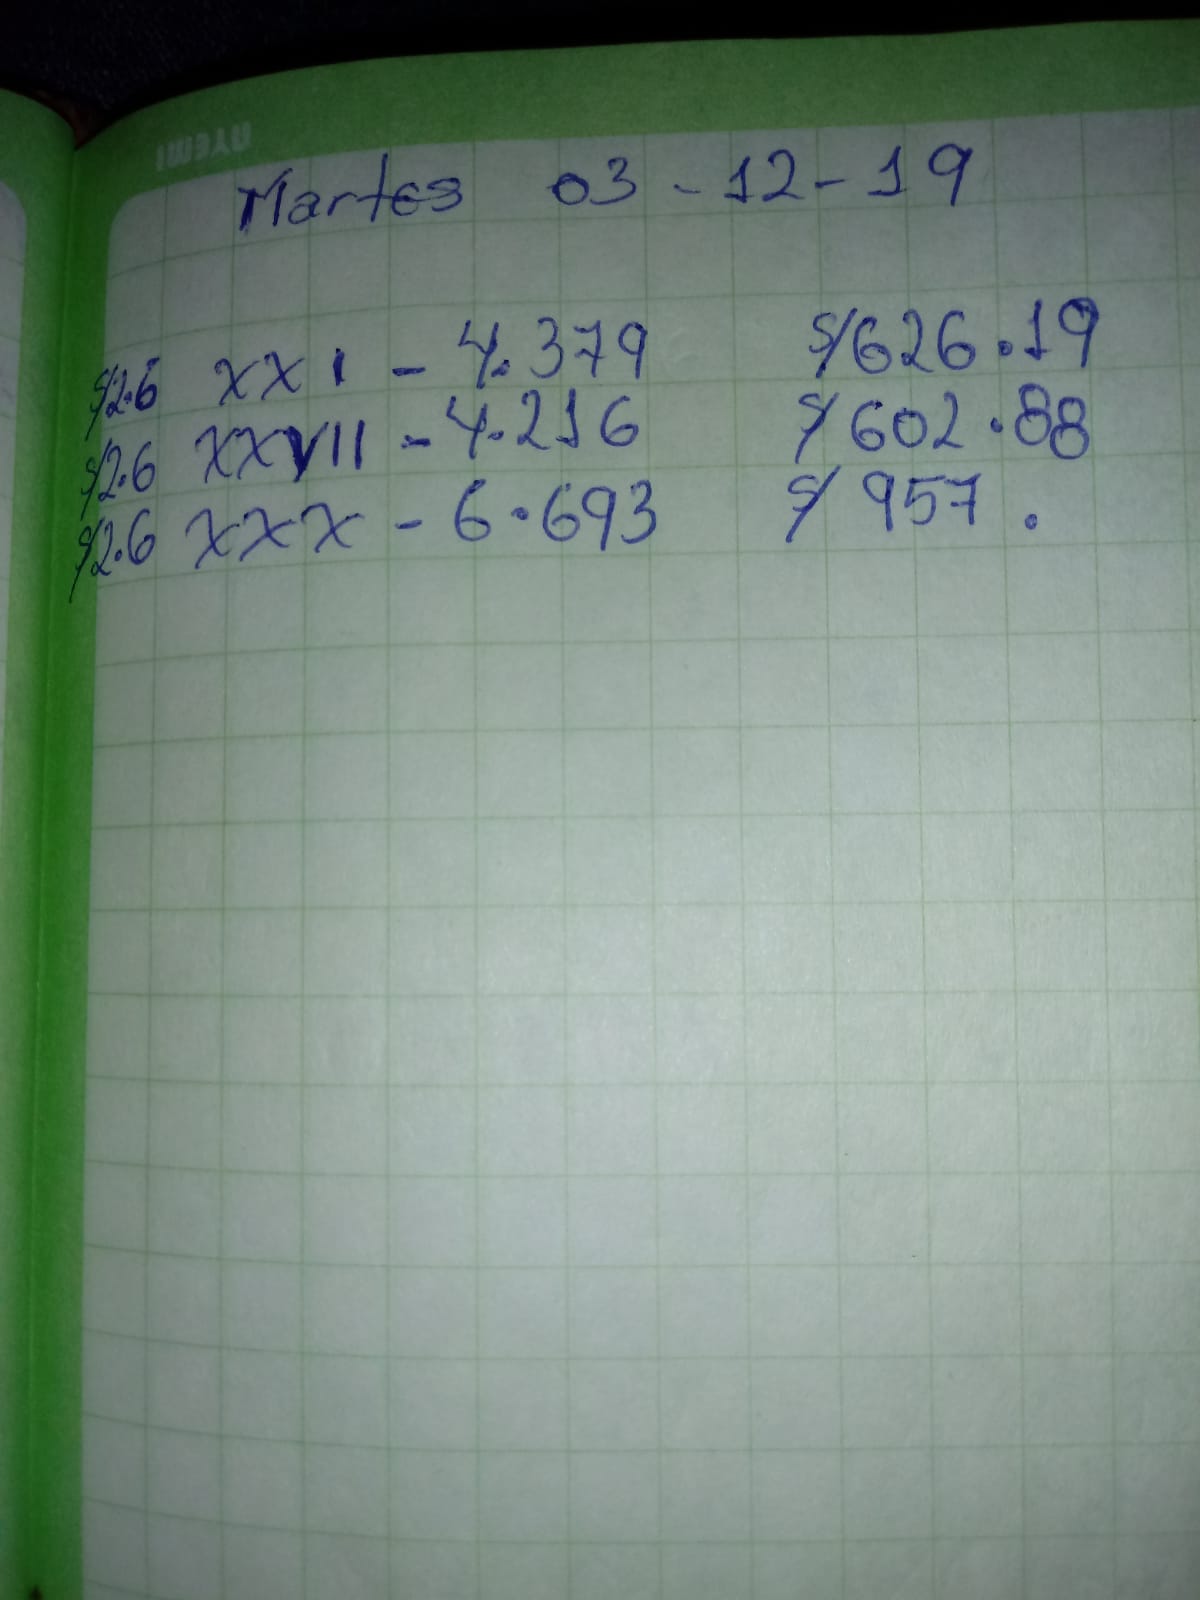 Martes 03-12-19
S/2.6 XXI - 4.379 S/626.19
S/2.6 XXVII - 4.216 S/602.88
S/2.6 XXX - 6.693 S/957.